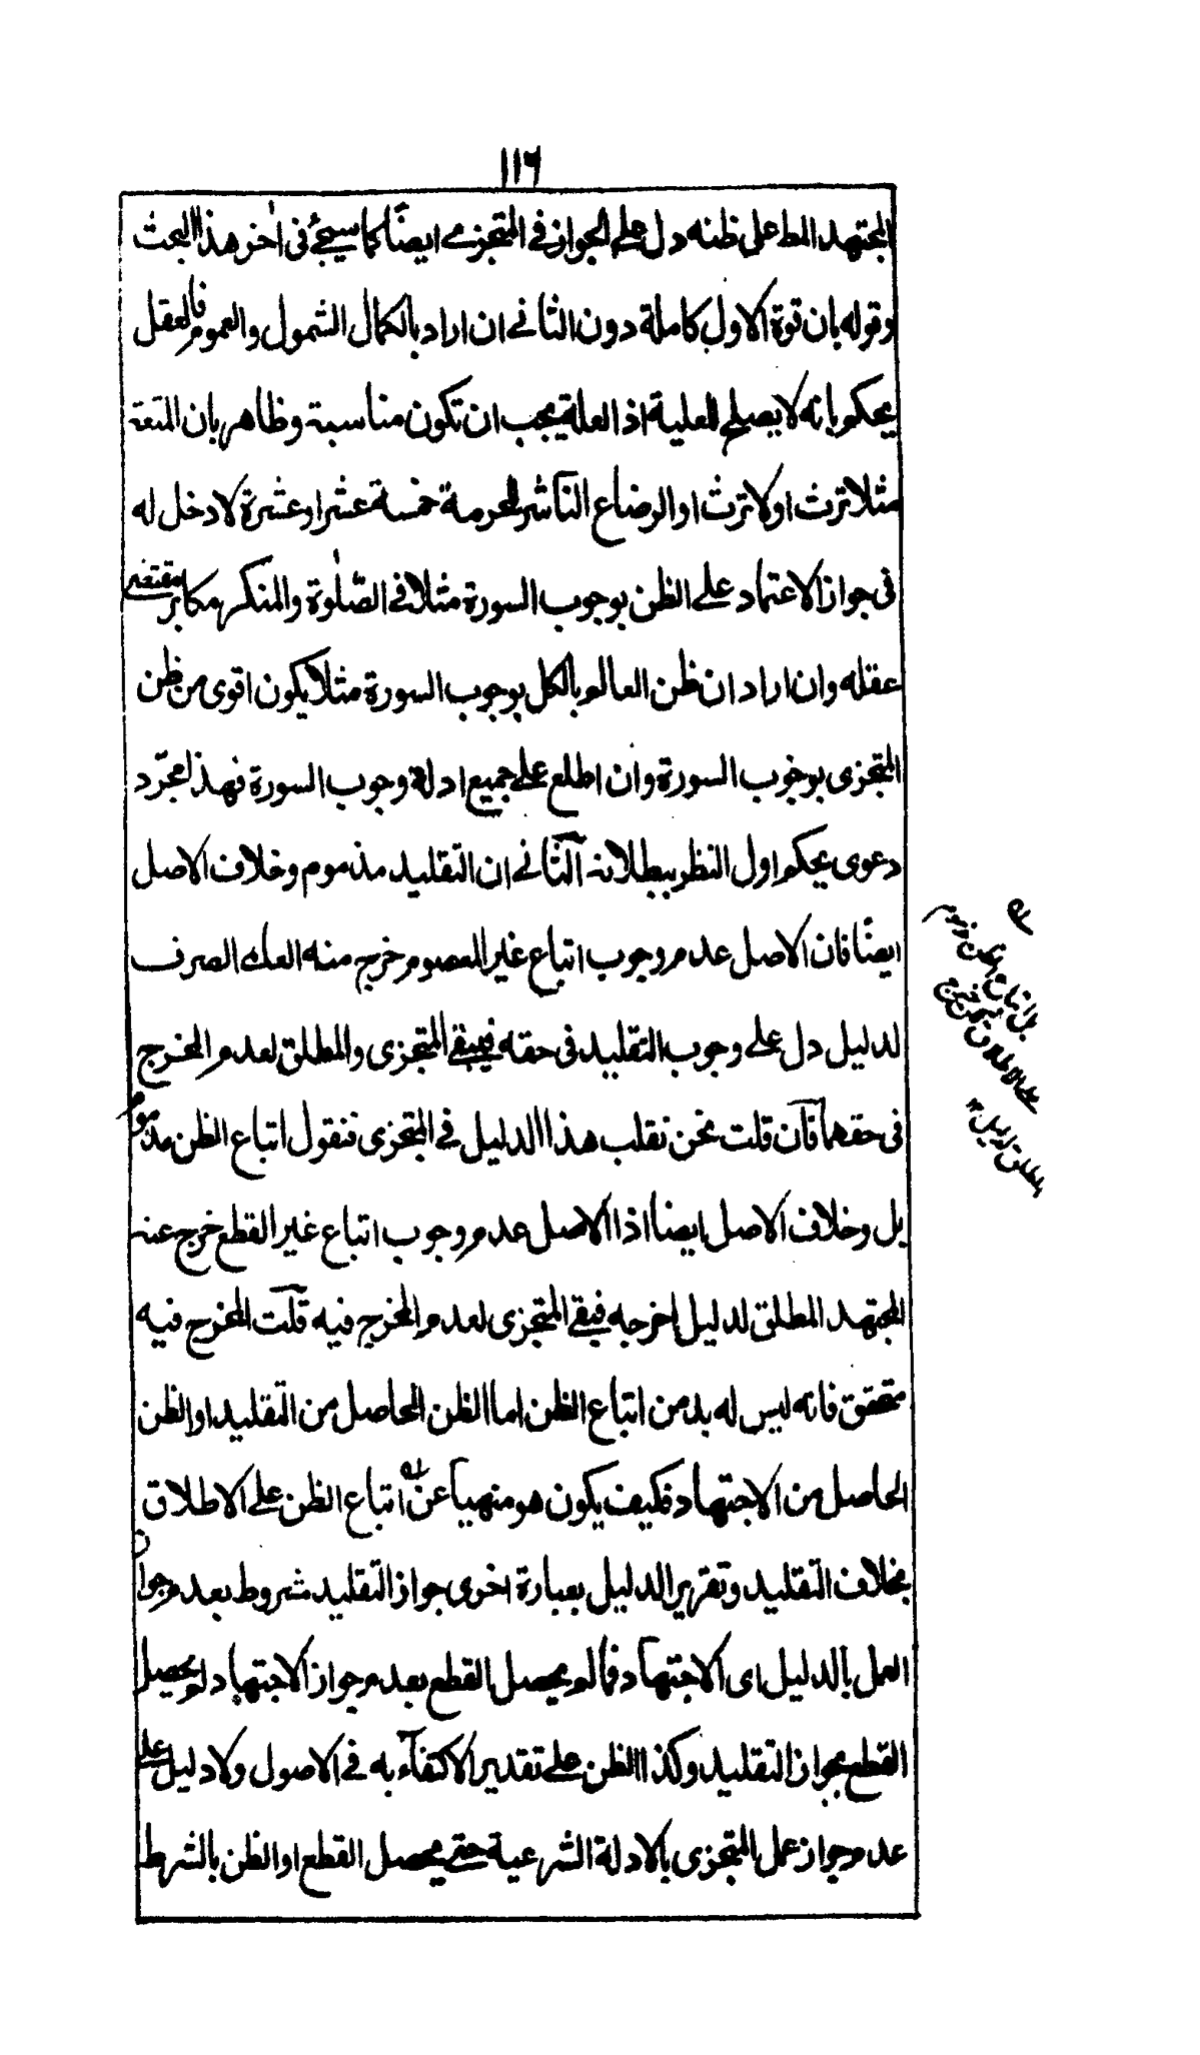 ١١٦
المجتهد المط على ظنه دل على الجواز في المتجزى ايضًا كما سيجئ فى اٰخر هذا البحث
وقوله بان قوة الاول كاملة دون الثانى ان اراد بالكمال الشمول والعموم فالعقل
يحكم بانه لا يصلح للعلية اذ العلة يجب ان تكون مناسبة وظاهر بان المتعة
مثلا ترث او لا ترث او الرضاع الناشر للحرمة خمسة عشر او عشرة لا دخل له
فى جواز الاعتماد على الظن بوجوب السورة مثلا فى الصّلٰوة والمنكر مكابر مقتضى
عقله وان اراد ان ظن العالم بالكل بوجوب السورة مثلا يكون اقوى من ظن
المتجزى بوجوب السورة وان اطلع على جميع ادلة وجوب السورة فهذا مجرّد
دعوى يحكم اول النظر ببطلانه الثّانى ان التقليد مذموم وخلاف الاصل
ايضًا فان الاصل عدم وجوب اتباع غير المعصوم خرج منه العامى الصرف
لدليل دل على وجوب التقليد فى حقه فيبقى المتجزى والمطلق لعدم المخرج
فى حقهما فان قلت نحن نقلب هذا الدليل فى المتجزى فنقول اتباع الظن مذموم
بل وخلاف الاصل ايضا اذ الاصل عدم وجوب اتباع غير القطع خرج عنه
المجتهد المطلق لدليل اخرجه فيبقى المتجزى لعدم المخرج فيه قلت المخرج فيه
متحقق فانه ليس له بد من اتباع الظن اما الظن الحاصل من التقليد او الظن
الحاصل من الاجتهاد فكيف يكون هو منهيا عن اتباع الظن على الاطلاق
بخلاف التقليد وتقرير الدليل بعبارة اخرى جواز التقليد مشروط بعدم جواز
العمل بالدليل اى الاجتهاد فما لم يحصل القطع بعدم جواز الاجتهاد لم يحصل
القطع بجواز التقليد وكذا الظن على تقدير الاكتفاء به فى الاصول ولا دليل على
عدم جواز عمل المتجزى بالادلة الشرعية حتى يحصل القطع او الظن بالشرط